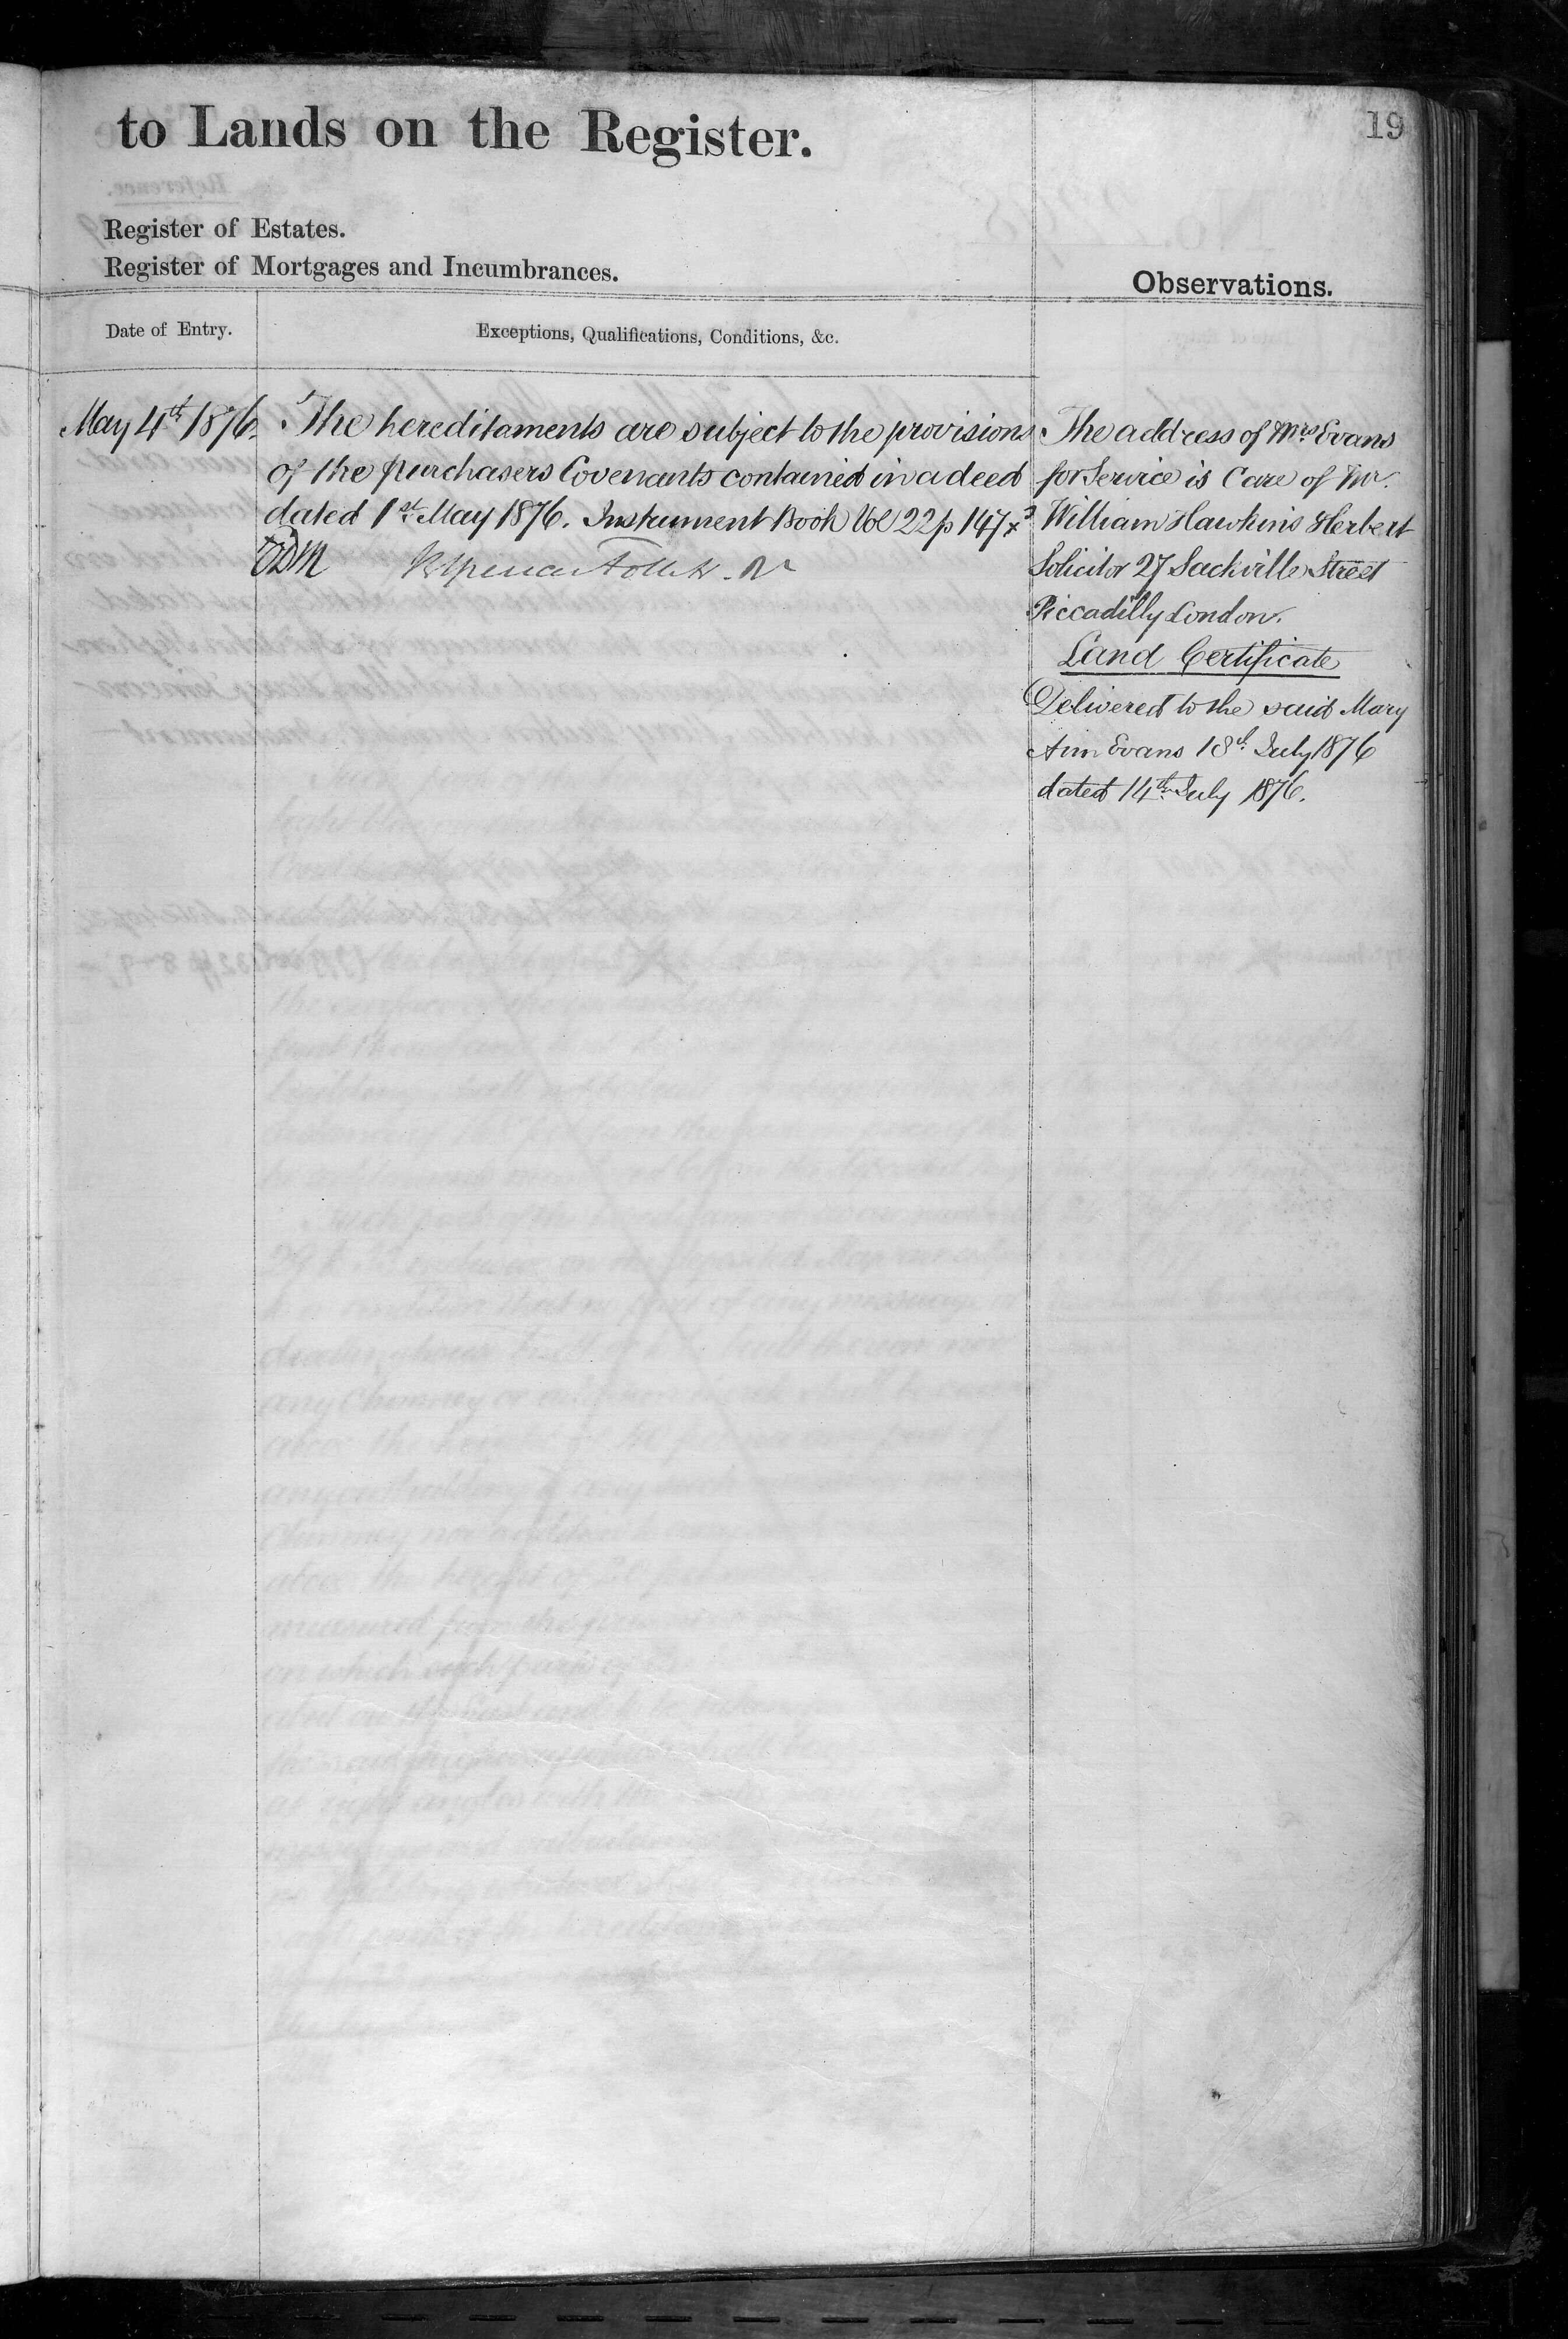 to Lands on the Register.
19
Register of Estates.
Register of Mortgages and Incumbrances.
Observations.
Date of Entry.
Exceptions, Qualifications, Conditions, &c.
May 4th 1876.
The hereditaments are subject to the provisions
of the purchasers Covenants contained in a deed
dated 1st May 1876. Instrument Book Vol 22 p 147
The address of Mrs Evans
for Service is Care of Mr.
William Hawkins Herbert
Solicitor 27 Sackville Street
Piccadilly London.
Land Certificate
Delivered to the said Mary
Ann Evans 18th July 1876
dated 14th July 1876.